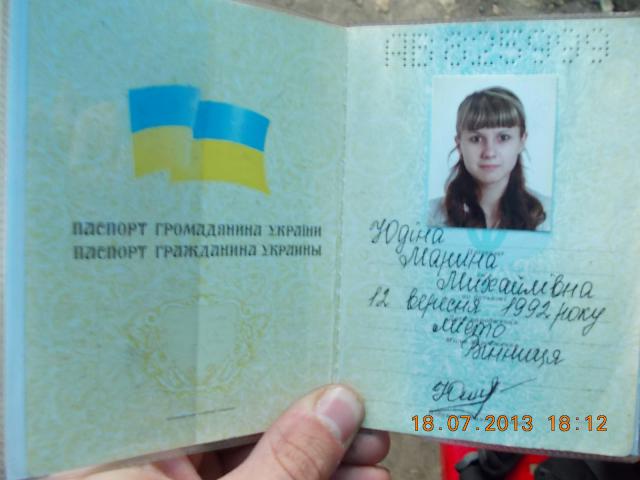 ПАСПОРТ ГРОМАДЯНИНА УКРАЇНИ
ПАСПОРТ ГРАЖДАНИНА УКРАИНЫ
Юдіна
Марина
Михайлівна
12 вересня 1992 року
місто
Вінниця
18.07.2013 18:12